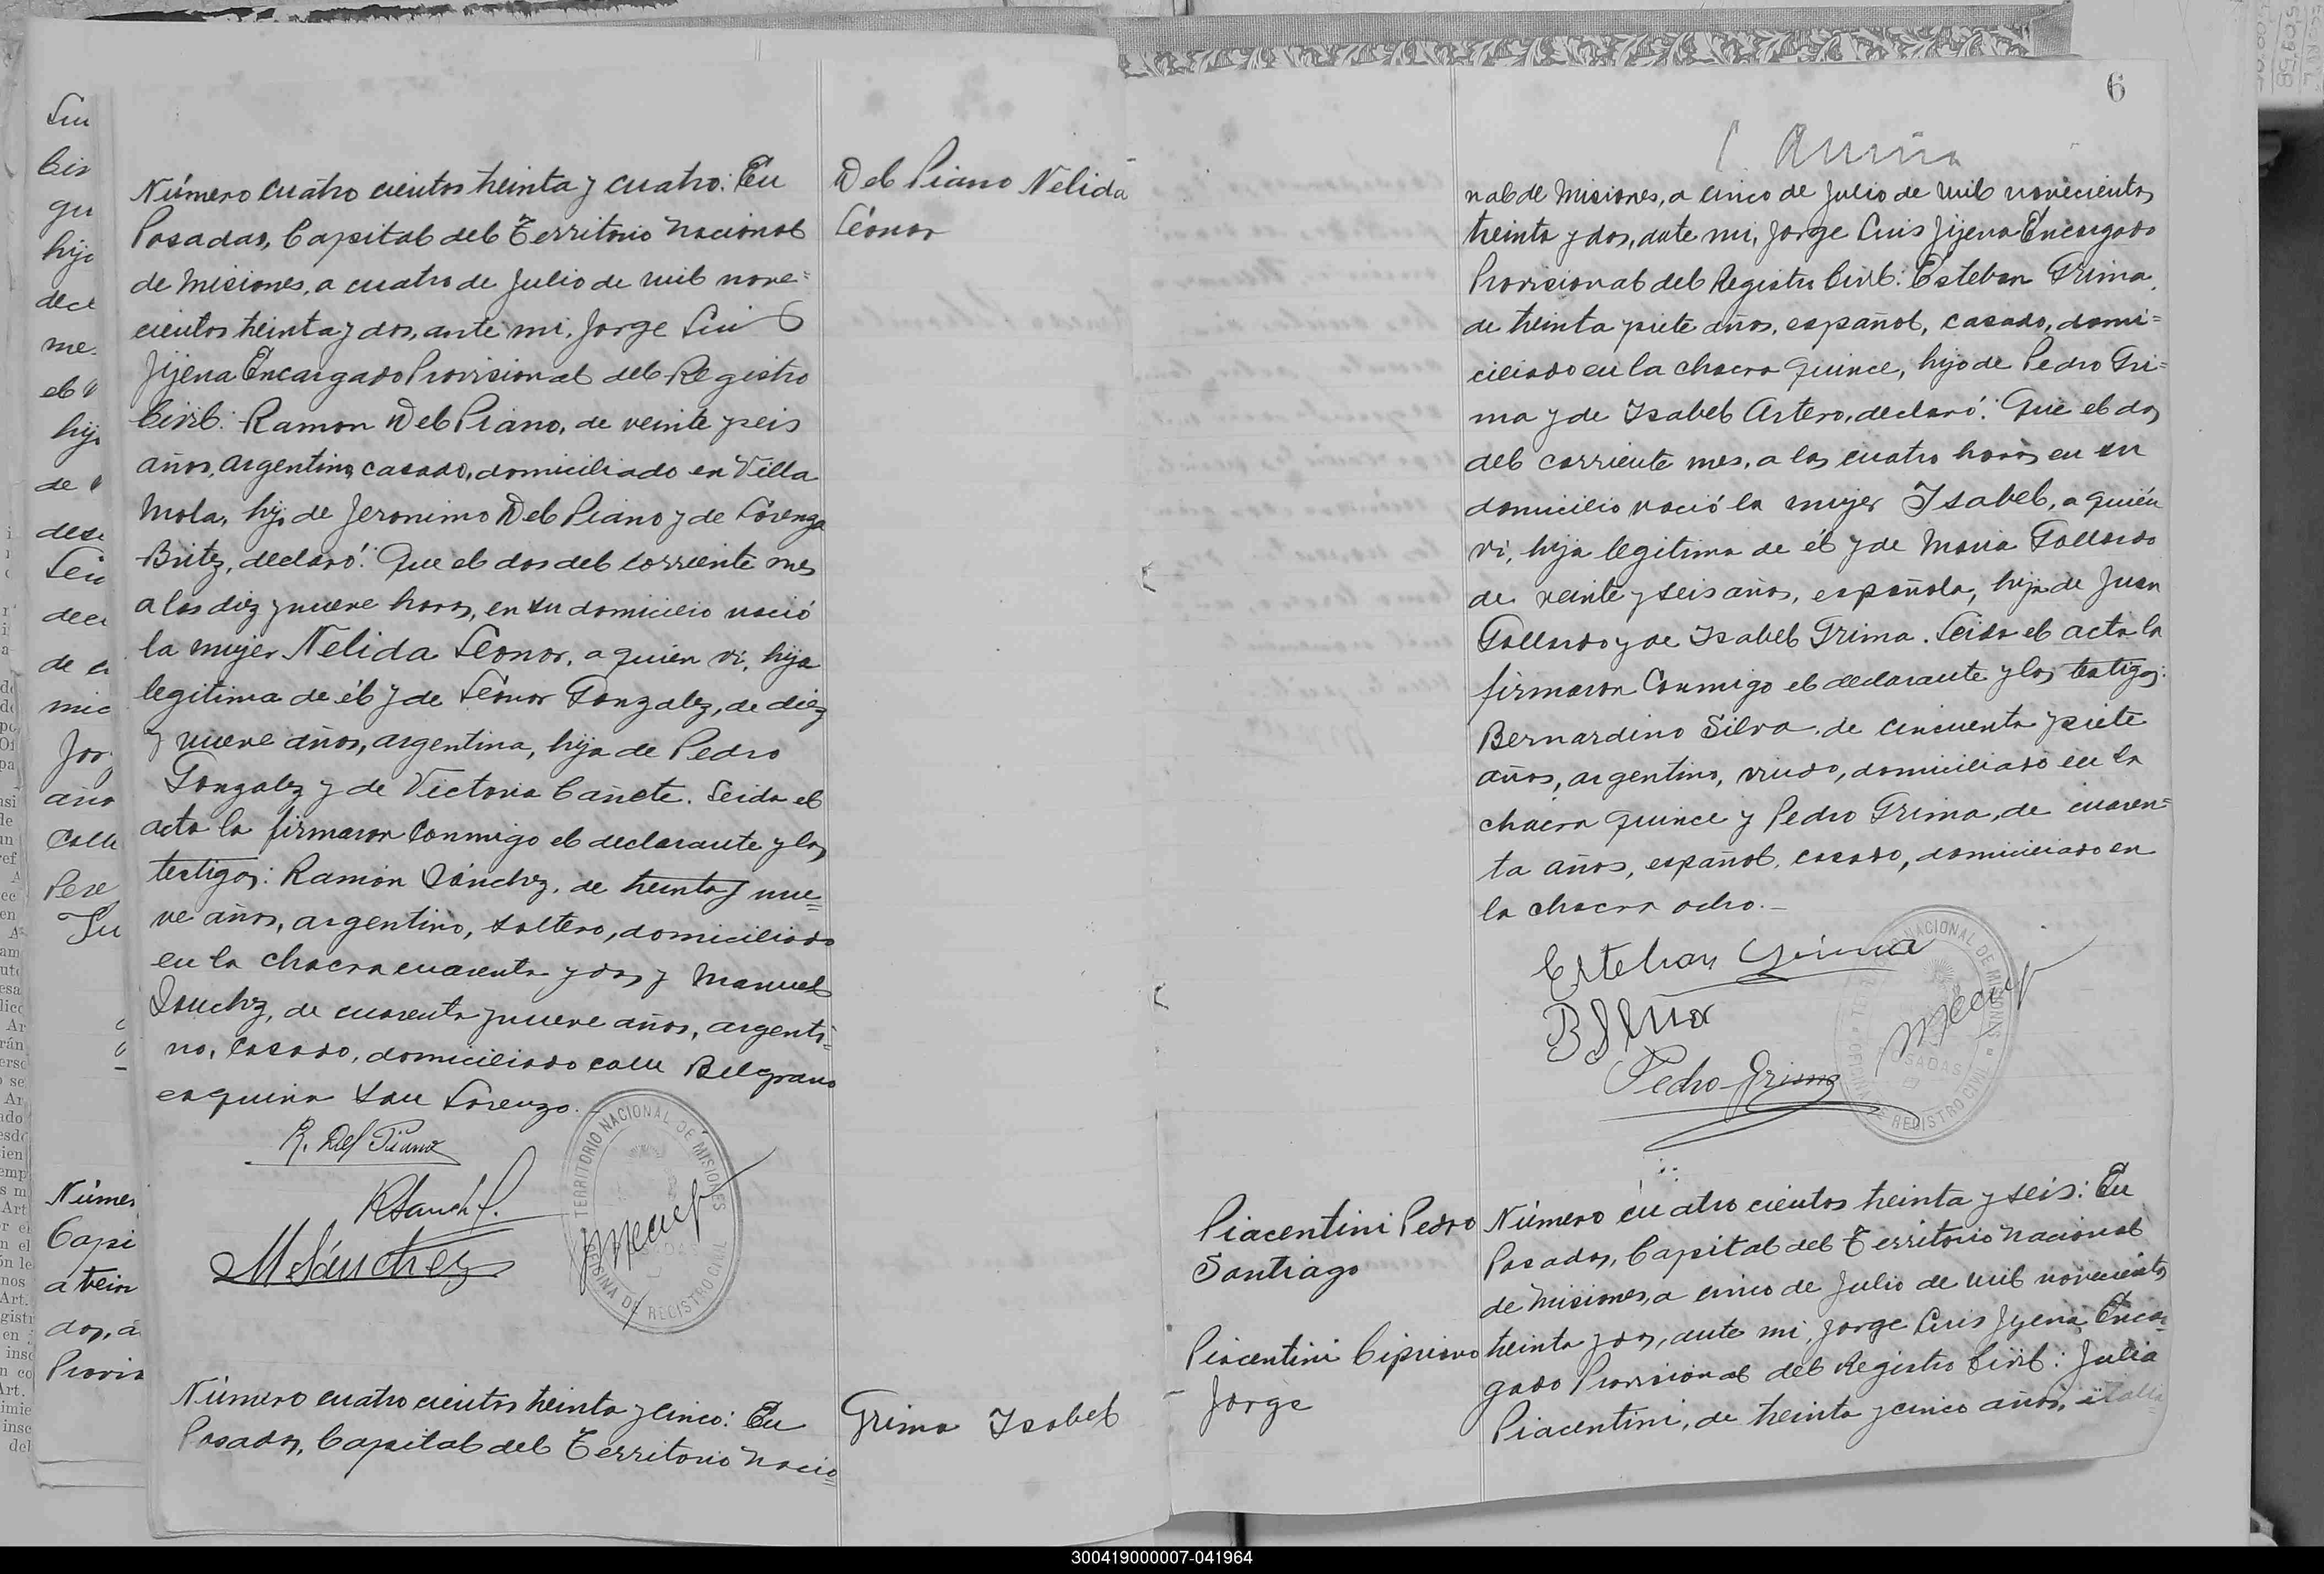 Número cuatro cientos treinta y cuatro: En
Posadas, Capital del Territorio Nacional
de Misiones, a cuatro de Julio de mil nove=
cientos treinta y dos, ante mi, Jorge Luis
Jijena Encargado Provisional del Registro
Civil: Ramon Del Piano, de veinte y seis
años, argentino, casado, domiciliado en Villa
Mola, hijo de Jeronimo Del Piano y de Lorenza
Britz, declaró: Que el dos del corriente mes
a las diez y nueve horas, en su domicilio nació
la mujer Nelida Leonor, a quien vi, hija
legitima de él y de Leonor Gonzalez, de diez
y nueve años, argentina, hija de Pedro
Gonzalez y de Victoria Cañete. Leida el
acta la firmaron conmigo el declarante y los
testigos: Ramón Sánchez, de treinta y nue=
ve años, argentino, soltero, domiciliado
en la chacra cuarenta y dos y Manuel
Sanchez, de cuarenta y nueve años, argenti=
no, casado, domiciliado calle Belgrano
esquina San Lorenzo.
R. Del Piano
RSanch
M Sánchez
TERRITORIO NACIONAL DE MISIONES
OFICINA DE REGISTRO CIVIL
Número cuatro cientos treinta y cinco: En
Posadas, Capital del Territorio Nacio=
Del Piano Nelida
Leonor
Grima Isabel
6
nal de Misiones, a cinco de Julio de mil novecientos
treinta y dos, ante mi, Jorge Luis Jijena Encargado
Provisional del Registro Civil: Esteban Grima,
de treinta y siete años, español, casado, domi=
ciliado en la chacra quince, hijo de Pedro Gri=
ma y de Isabel Artero, declaró: Que el dos
del corriente mes, a las cuatro horas en su
domicilio nació la mujer Isabel, a quién
vi, hija legitima de él y de Maria Gallardo
de veinte y seis años, española, hija de Juan
Gallardo y de Isabel Grima. Leida el acta la
firmaron conmigo el declarante y los testigos:
Bernardino Silva de cincuenta y siete
años, argentino, viudo, domiciliado en la
chacra quince y Pedro Grima, de cuaren=
ta años, español, casado, domiciliado en
la chacra ocho.-
Esteban Grima
BSilva
Pedro Grima
NACIONAL DE MISIONES
POSADAS
DE REGISTRO CIVIL
Piacentini Pedro
Santiago
Piacentini Cipriano
Jorge
Número cuatro cientos treinta y seis: En
Posadas, Capital del Territorio Nacional
de Misiones, a cinco de Julio de mil novecientos
treinta y dos, ante mi, Jorge Luis Jijena, Encar=
gado Provisional del Registro Civil: Julio
Piacentini, de treinta y cinco años, italia
300419000007-041964